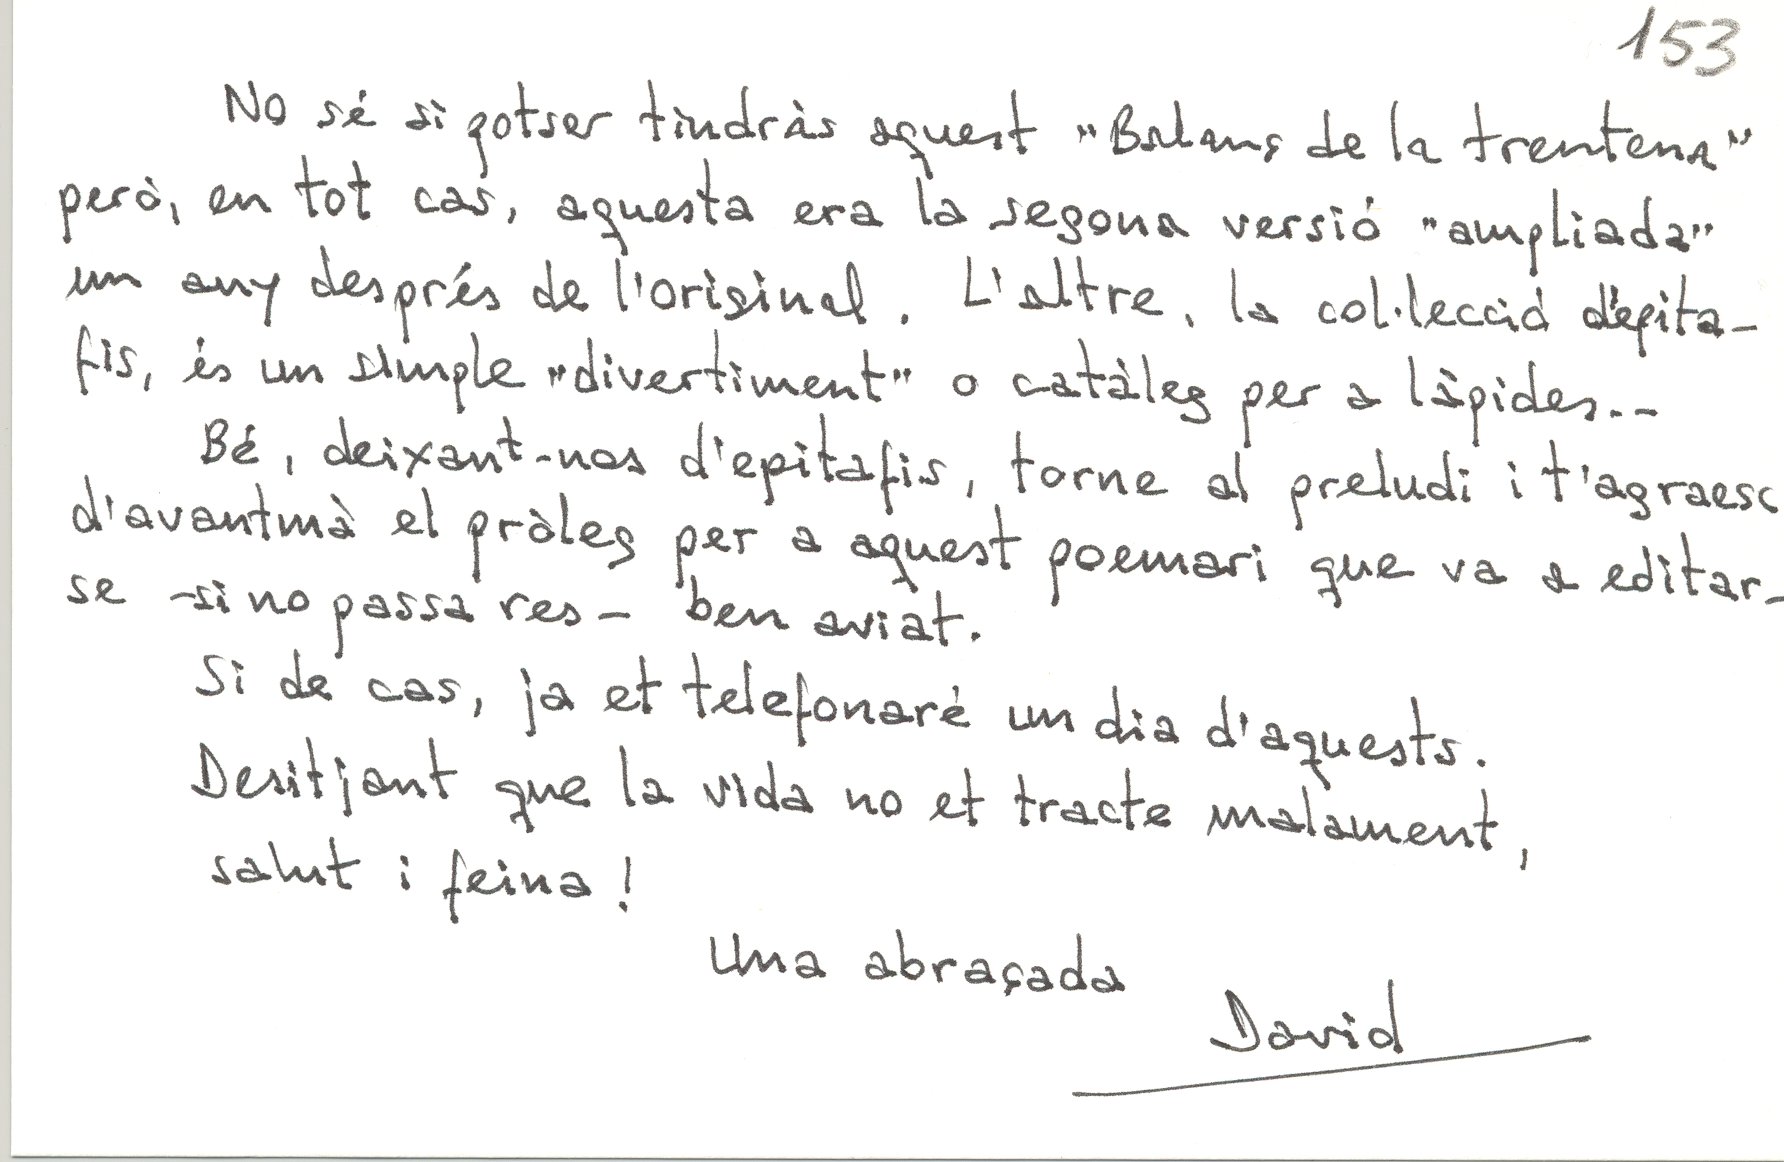 153
No sé si potser tindràs aquest "Balanç de la trentena"
però, en tot cas, aquesta era la segona versió "ampliada"
un any després de l'original. L'altre, la col·lecció d'epita-
fis, és un simple "divertiment" o catàleg per a làpides...
Bé, deixant-nos d'epitafis, torne al preludi i t'agraesc
d'avantmà el pròleg per a aquest poemari que va a editar-
se -si no passa res- ben aviat.
Si de cas, ja et telefonaré un dia d'aquests.
Desitjant que la vida no et tracte malament,
salut i feina!
Una abraçada
David